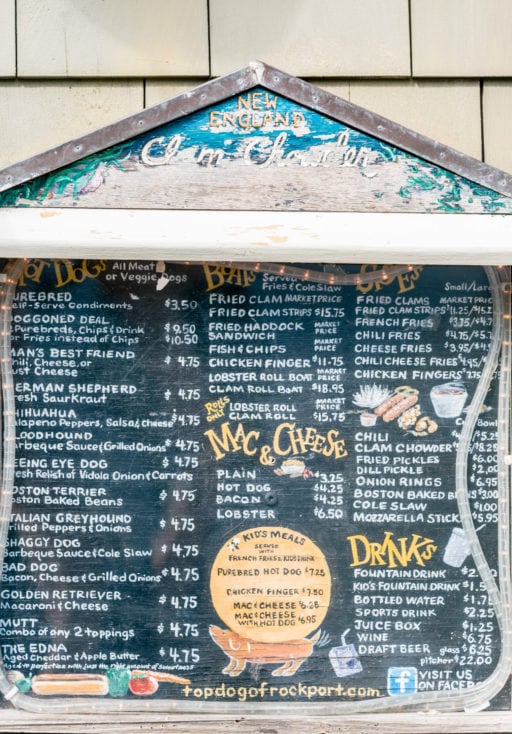 NEW
ENGLAND
Clam Chowder
Hot Dogs All Meat
or Veggie Dogs
UREBRED $3.50
elf-Serve Condiments
OGGONED DEAL
Purebreds, Chips & Drink $9.50
or Fries instead of Chips $10.50
MAN'S BEST FRIEND
hili, Cheese, or $ 4.75
ust Cheese
ERMAN SHEPHERD
resh SaurKraut $ 4.75
HIHUAHUA
alapeno Peppers, Salsa, Cheese $4.75
LOODHOUND
arbeque Sauce & Grilled Onions $4.75
EEING EYE DOG
resh Relish of Vidala Onion & Carrots $ 4.75
OSTON TERRIER
oston Baked Beans $ 4.75
TALIAN GREYHOUND
rilled Peppers & Onions $ 4.75
SHAGGY DOG
Barbeque Sauce & Cole Slaw $ 4.75
BAD DOG
Bacon, Cheese & Grilled Onions $ 4.75
GOLDEN RETRIEVER
Macaroni & Cheese $ 4.75
MUTT
Combo of any 2 toppings $ 4.75
THE EDNA
Aged Cheddar & Apple Butter $ 4.75
perfection with just the right amount of sweetness
BOATS Served
Fries & Cole Slaw
FRIED CLAM MARKET PRICE
FRIED CLAM STRIPS $15.75
FRIED HADDOCK SANDWICH MARKET PRICE
FISH & CHIPS MARKET PRICE
CHICKEN FINGER $11.75
LOBSTER ROLL BOAT MARKET PRICE
CLAM ROLL BOAT $18.95
ROLLS ONLY
LOBSTER ROLL MARKET PRICE
CLAM ROLL $15.75
MAC & CHEESE
PLAIN $3.25
HOT DOG $4.25
BACON $4.25
LOBSTER $6.50
KID'S MEALS
SERVED WITH
FRENCH FRIES, KIDS DRINK
PUREBRED HOT DOG $7.25
CHICKEN FINGER $7.50
MAC & CHEESE $6.25
MAC & CHEESE
WITH HOT DOG $6.95
Small/Large
FRIED CLAMS MARKET PRICE
FRIED CLAM STRIPS $11.25/
FRENCH FRIES $3.75/
CHILI FRIES $4.75/
CHEESE FRIES $3.95/
CHILI CHEESE FRIES
CHICKEN FINGERS
Bowl
CHILI
CLAM CHOWDER
FRIED PICKLES $6.00
DILL PICKLE $2.00
ONION RINGS $6.95
BOSTON BAKED BEANS $3.00
COLE SLAW $1.00
MOZZARELLA STICKS $5.95
DRINKS
FOUNTAIN DRINK
KID'S FOUNTAIN DRINK
BOTTLED WATER
SPORTS DRINK $2.25
JUICE BOX $1.25
WINE $6.75
DRAFT BEER glass $6.25
pitcher $22.00
f VISIT US
ON FACEB
topdogofrockport.com